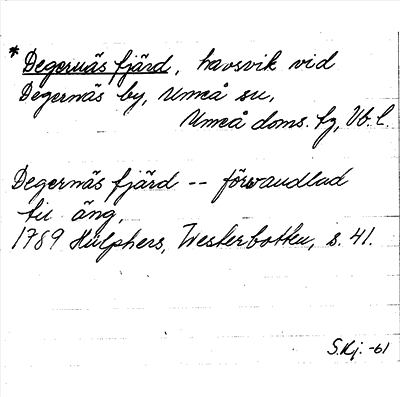 * Degernäs fjärd, havsvik vid
Degernäs by, Umeå sn,
Umeå doms. tg, Vb. l.
Degernäs fjärd -- förvandlad
till äng,
1789 Hülphers, Westerbotten, s. 41.
S.Kj. -61